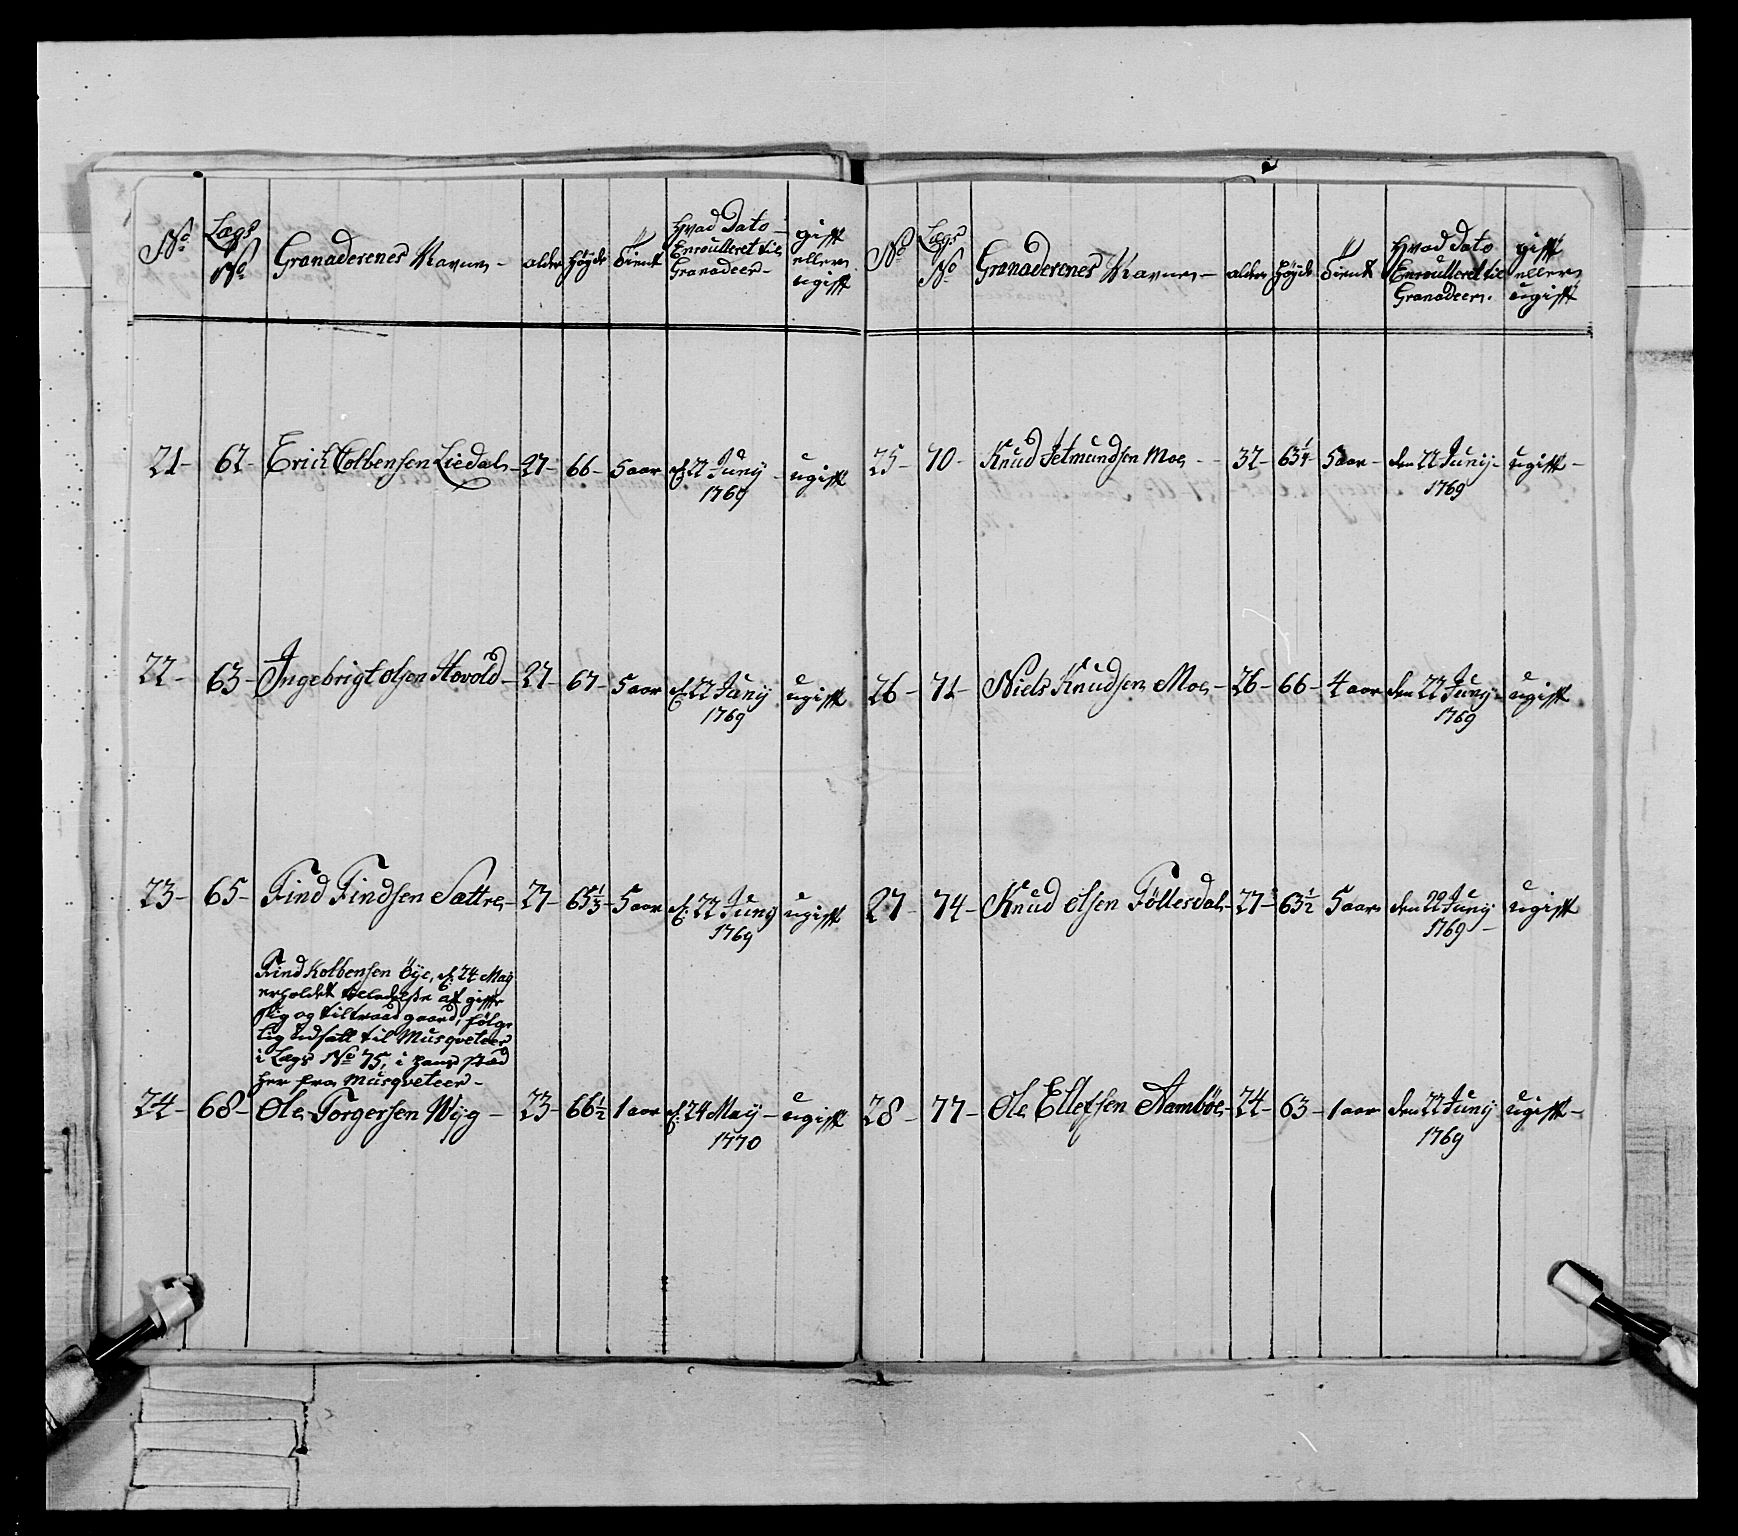 No
Lægs No
Granaderenes Navne -
alder
Høyde
Tient
Hvad Dato Enroulleret til Granadeer -
gift eller ugift
21 - 67 - Erich Colbensen Liedal - 27 - 66 - 5 aar d. 22 Junij 1769 - ugift
22 - 63 - Ingebrigt olsen Hovold - 27 - 67 - 5 aar d. 22 Junij 1769 ugift
23 - 65 - Find Findsen Sættre - 27 - 65 1/3 - 5 aar d. 22 Junij 1769 ugift
Find Kolbensen Öÿe, d. 24 Maij
erholdet at gifte
sig og tiltræde gaard, fölge
lig udsatt til Musqveteer
i Lægs No 75, i hans stæd
her fra Musqveteer -
24 - 68 - Ole Torgersen Wÿg - 23 - 66 1/2 1 aar d. 24 Maij - 1770 ugift
No
Lægs No
Granaderenes Navne -
alder
Høyde
Tient
Hvad Dato Enroulleret til Granadeer.
gift eller ugift
25 - 70 - Knud Jetmundsen Moe - 32 - 63 1/4 - 5 aar - den 22 Junij - 1769 ugift -
26 - 71 - Niels Knudsen Moe - 26 - 66 - 4 aar den 22 Junij - 1769 ugift
27 - 74 - Knud olsen Föllesdal - 27 - 63 1/2 5 aar den 22 Junij 1769 - ugift
28 - 77 - Ole Ellefsen Aamböe - 24 - 63 - 1 aar den 22 Junij 1769 ugift -